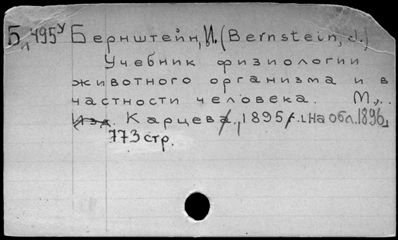 Бл495у Бернштейн, И. (Bernstein, J.)
Учебник физиологии
животного организма и в
частности человека. М.,
Изд. Карцева, 1895г. [На обл. 1896]
773 стр.